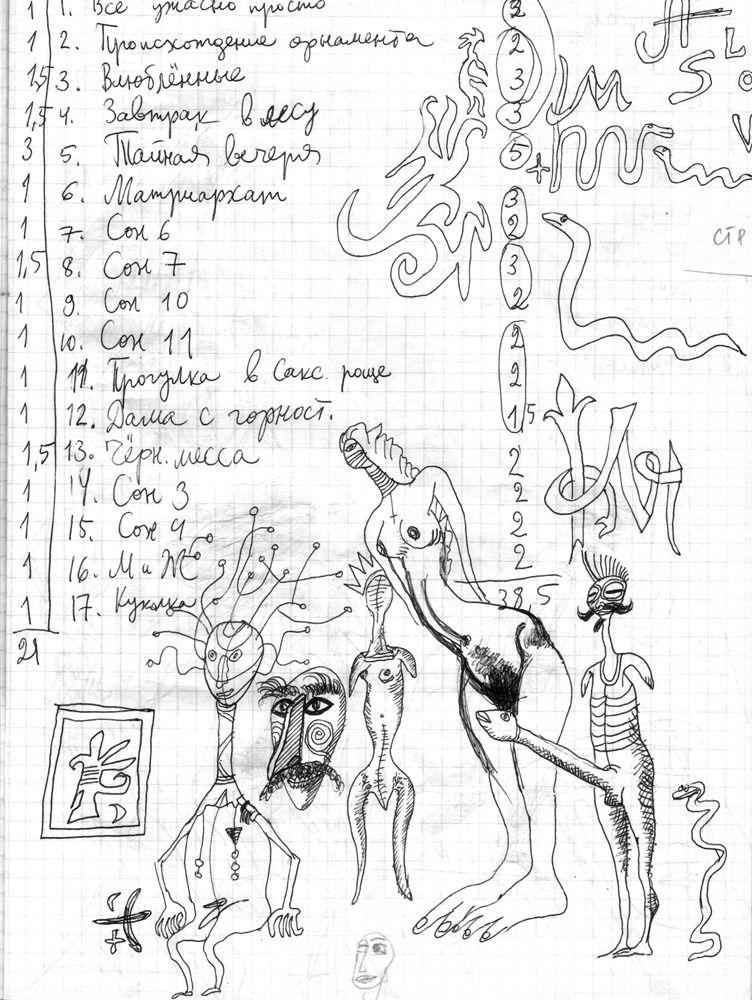 1 1. Все ужасно просто 3
1 2. Происхождение орнамента 2
1,5 3. Влюблённые 3
1,5 4. Завтрак в лесу 3
3 5. Тайная вечеря 5
1 6. Матриархат 3
1 7. Сон 6 2
1,5 8. Сон 7 3
1 9. Сон 10 2
1 10. Сон 11 2
1 11. Прогулка в Сакс. роще 2
1 12. Дама с горност. 1,5
1,5 13. Чёрн. месса 2
1 14. Сон 3 2
1 15. Сон 4 2
1 16. М и Ж 2
1 17. Куколка
21
38,5
стр